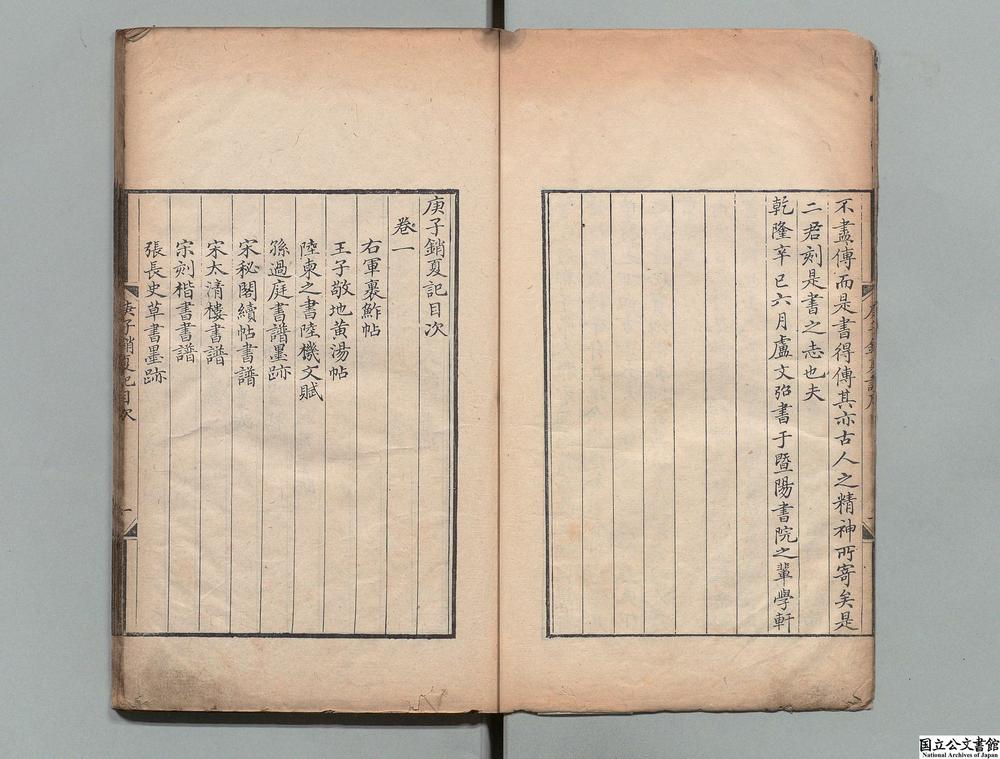 不盡傳而是書得傳其亦古人之精神所寄矣是
二君刻是書之志也夫
乾隆辛巳六月盧文弨書于暨陽書院之輩學軒
庚子銷夏記目次
卷一
右軍裹鮓帖
王子敬地黄湯帖
陸柬之書陸機文賦
孫過庭書譜墨跡
宋秘閣續帖書譜
宋太清樓書譜
宋刻楷書書譜
張長史草書墨跡
庚子銷夏記目次
一
国立公文書館
National Archives of Japan